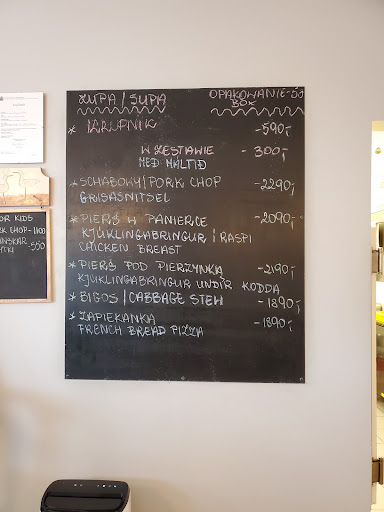 ZUPA / SUPA OPAKOWANIE-50
BOX
* KRUPNIK -590,-
W ZESTAWIE - 300,-
MEÐ MÁLTIÐ
* SCHABOWY / PORK CHOP -2290,-
GRISASNITSEL
* PIERŚ W PANIERCE -2090,-
KJÚKLINGABRINGUR I RASPI
CHICKEN BREAST
* PIERŚ POD PIERZYNKĄ -2190,-
KJUKLINGABRINGUR UNDIR KODDA
* BIGOS / CABBAGE STEW -1890,-
* ZAPIEKANKA -1890,-
FRENCH BREAD PIZZA
OR KIDS
CHOP-1100
-550